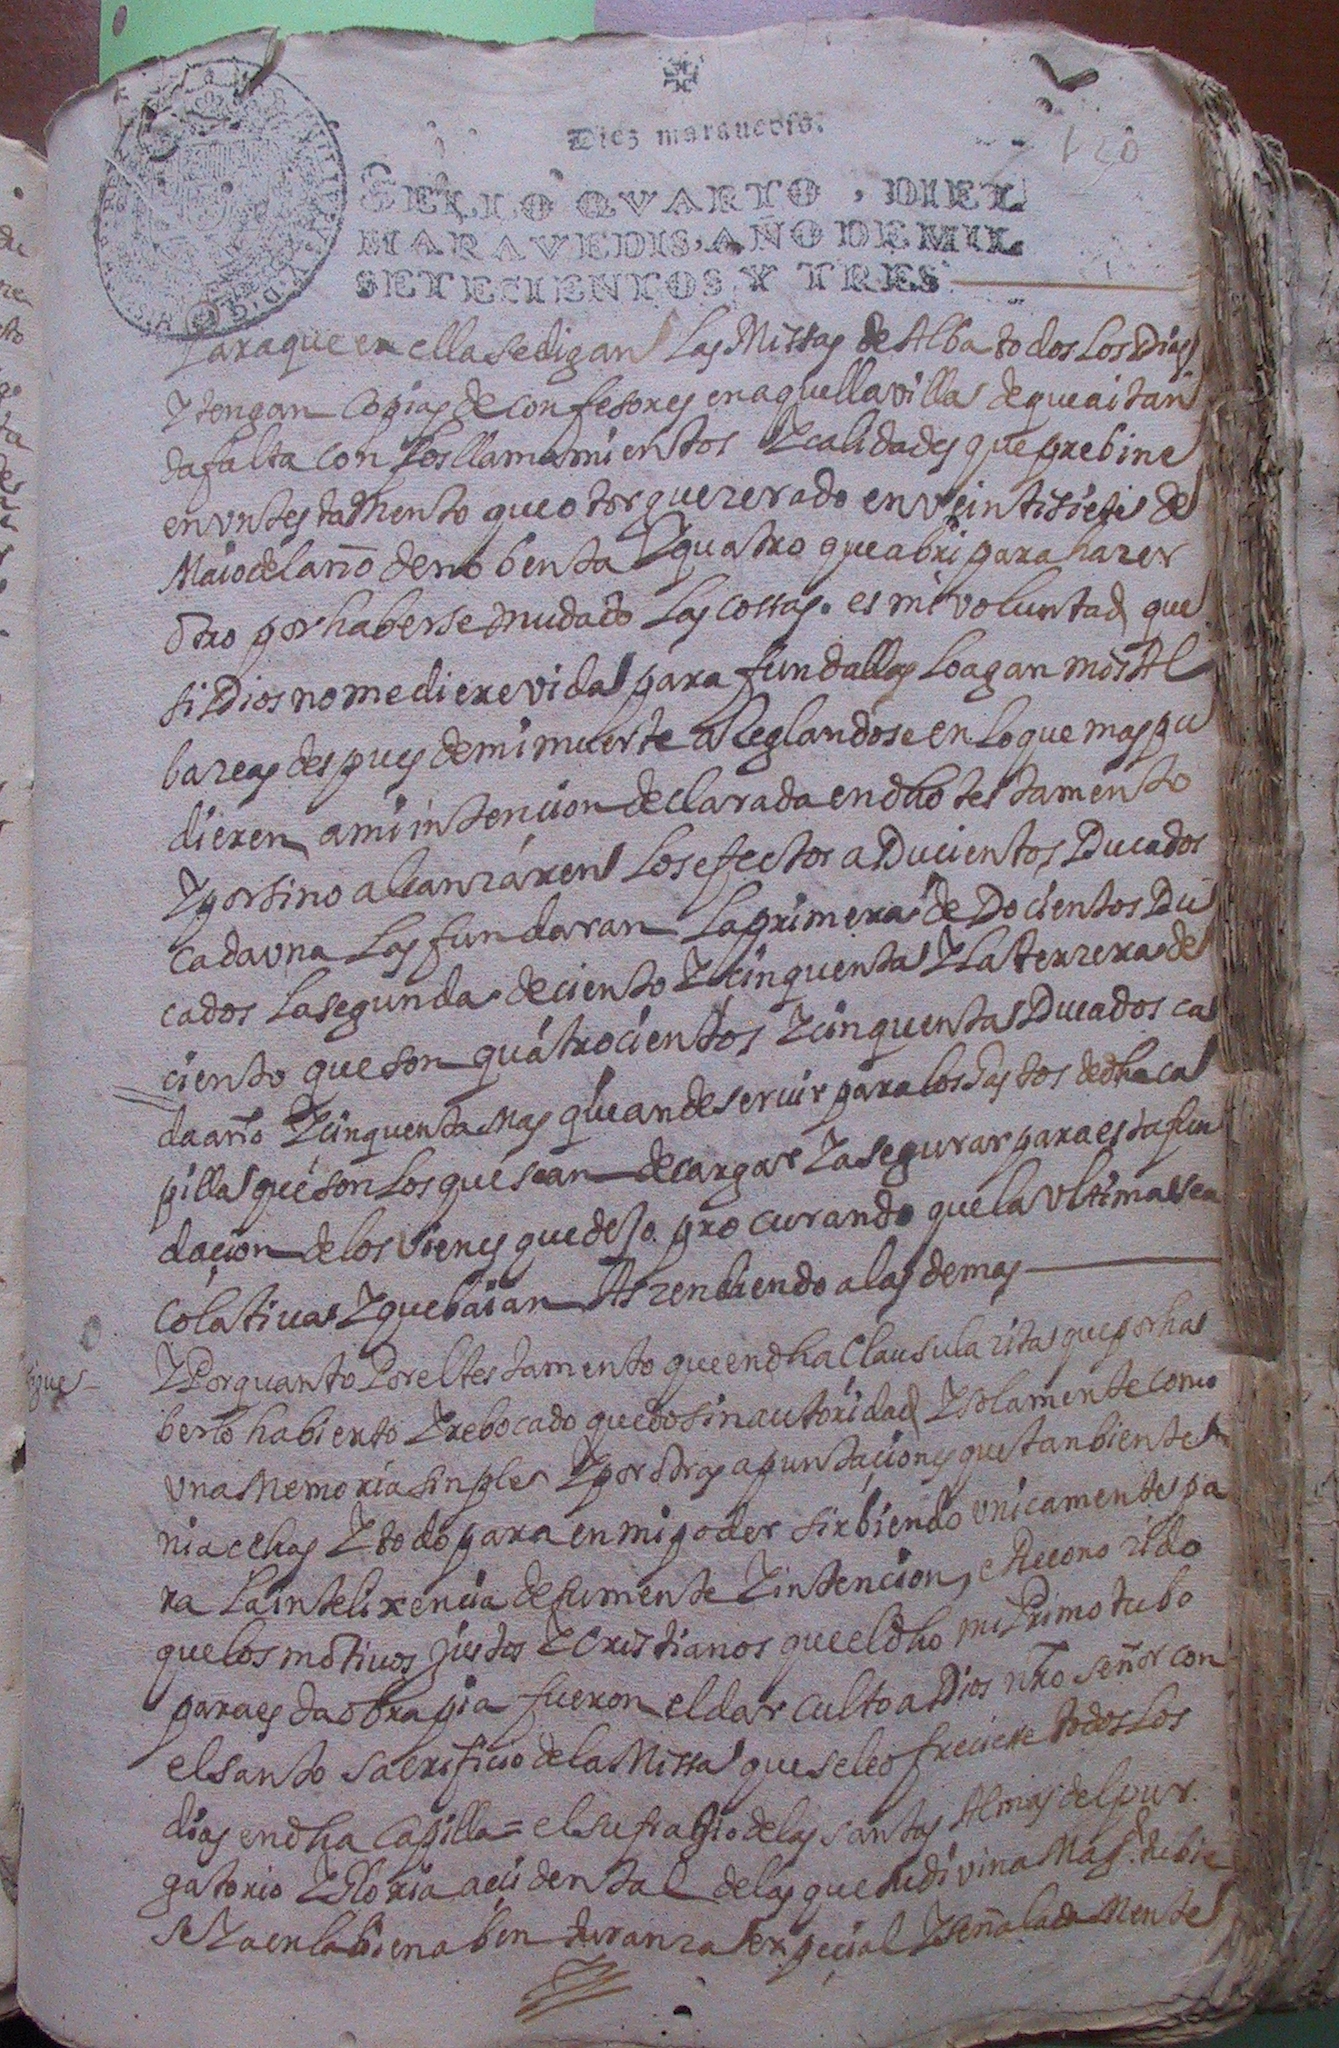 Diez marauedis.
120
SELLO QVARTO, DIEZ
MARAVEDIS, AÑO DE MIL
SETECIENTOS Y TRES
Para que en ella se digan las Missas de Alba todos los Dias
Y tengan copias de confesores en aquella villa de que ai tan
da falta con los llamamientos Y calidades que prebine
en vn testamento que otorgue zerado en veinti siete de
Maio del año de nobenta Y quatro que abri para hazer
otro por haberse mudado las cossas. es mi voluntad que
si Dios no me diere vida para fundallas lo agan mis Al
bazeas despues de mi muerte aReglandose en lo que mas pu
dieren a mi intencion declarada en dho testamento
Y por si no alcanzaren los efectos a Ducientos Ducados
cada una las fundaran la primera de Docientos Du
cados la segunda de ciento Y cinquenta Y la terzera de
ciento que son quatrocientos Y cinquenta Ducados ca
da año Y cinquenta mas que an de seruir para los Gastos de dha ca
pilla que son los que se an de cargar Y asegurar para esta fun
dacion de los vienes que dejo procurando que la vltima sea
colatiua Y que baian Aszendiendo a las demas
Y Por quanto Por el testamento que en dha Clausula zita que por ha
berlo habierto Y rebocado quedo sin autoridad Y solamente como
vna Memoria simple Y por otras apuntaciones que tanbien te
nia echas Y todo para en mi poder sirbiendo vnicamente pa
ra la intelixencia de su mente Y intencion, e Reconozido
que los motiuos justos Y Cristianos que el dho mi Primo tubo
para esta obra pia fueron el dar culto a Dios nro señor con
el santo sacrificio de la Missa que se le ofreciere todos los
dias en dha Capilla = el sufragio de las santas Almas del pur
gatorio Y Gloria acidental de las que su divina Magd. tubie
se Ya en la bienabenturanza especial Y señaladamente